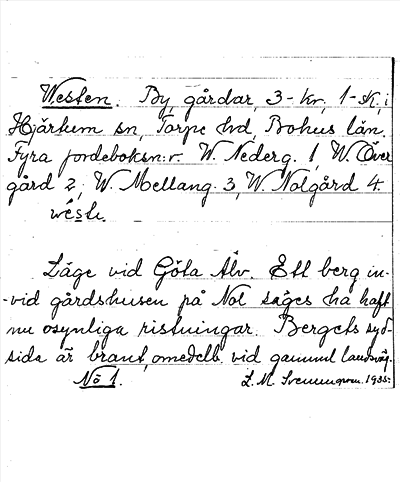 Westen. By, gårdar, 3-kr, 1-sk, i
Hjärtum sn, Torpe hd, Bohus län.
Fyra jordeboksn:r. W. Nederg. 1, W. Över
gård 2, W. Mellang. 3, W. Nolgård 4.
Läge vid Göta Älv. Ett berg in-
-vid gårdshusen på Nol säges ha haft
nu osynliga ristningar. Bergets syd-
sida är brant, omedelb. vid gammal landsväg.
No 1. L. M. 1935.